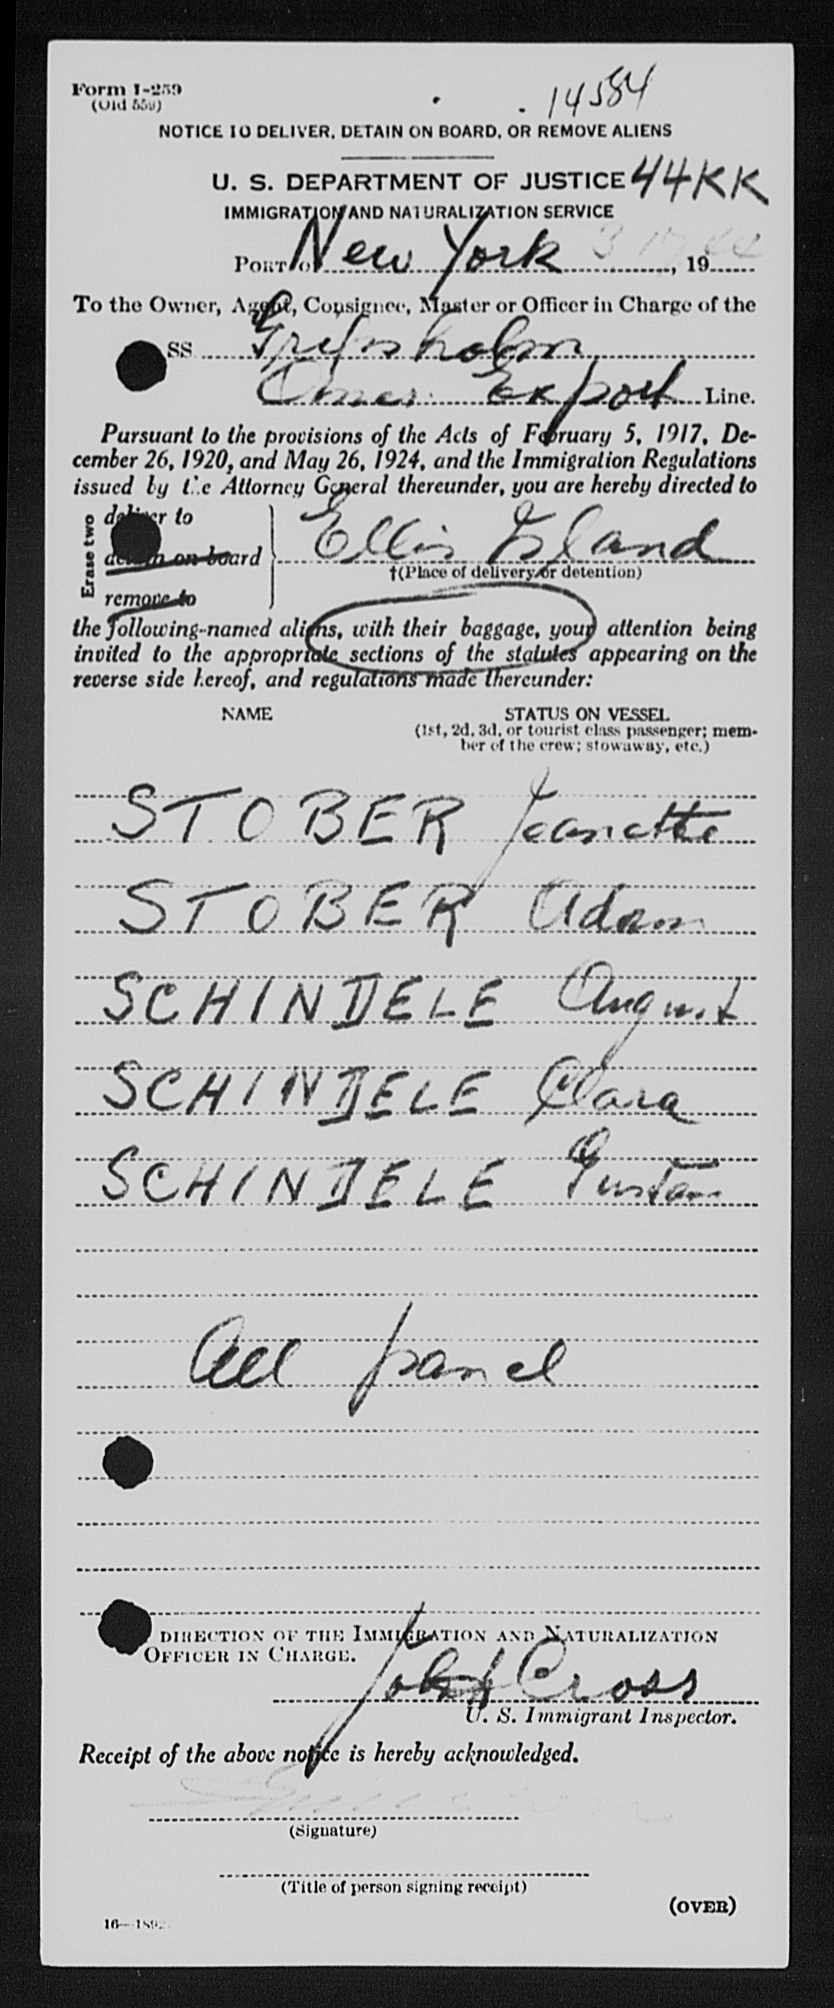 Form I-259
(Old 559)
14584
NOTICE TO DELIVER, DETAIN ON BOARD, OR REMOVE ALIENS
U. S. DEPARTMENT OF JUSTICE 44KK
IMMIGRATION AND NATURALIZATION SERVICE
PORT of New York, 19
To the Owner, Agent, Consignee, Master or Officer in Charge of the
SS Gripsholm
Amer. Export Line.
Pursuant to the provisions of the Acts of February 5, 1917, De-
cember 26, 1920, and May 26, 1924, and the Immigration Regulations
issued by the Attorney General thereunder, you are hereby directed to
Erase two
deliver to
detain on board
remove to
Ellis Island
†(Place of delivery or detention)
the following-named aliens, with their baggage, your attention being
invited to the appropriate sections of the statutes appearing on the
reverse side hereof, and regulations made thereunder:
NAME STATUS ON VESSEL
(1st, 2d, 3d, or tourist class passenger; mem-
ber of the crew; stowaway, etc.)
STOBER Jeanette
STOBER Adam
SCHINDELE August
SCHINDELE Clara
SCHINDELE Gustav
All panel
DIRECTION OF THE IMMIGRATION AND NATURALIZATION
OFFICER IN CHARGE.
John Cross
U. S. Immigrant Inspector.
Receipt of the above notice is hereby acknowledged.
(Signature)
(Title of person signing receipt)
(OVER)